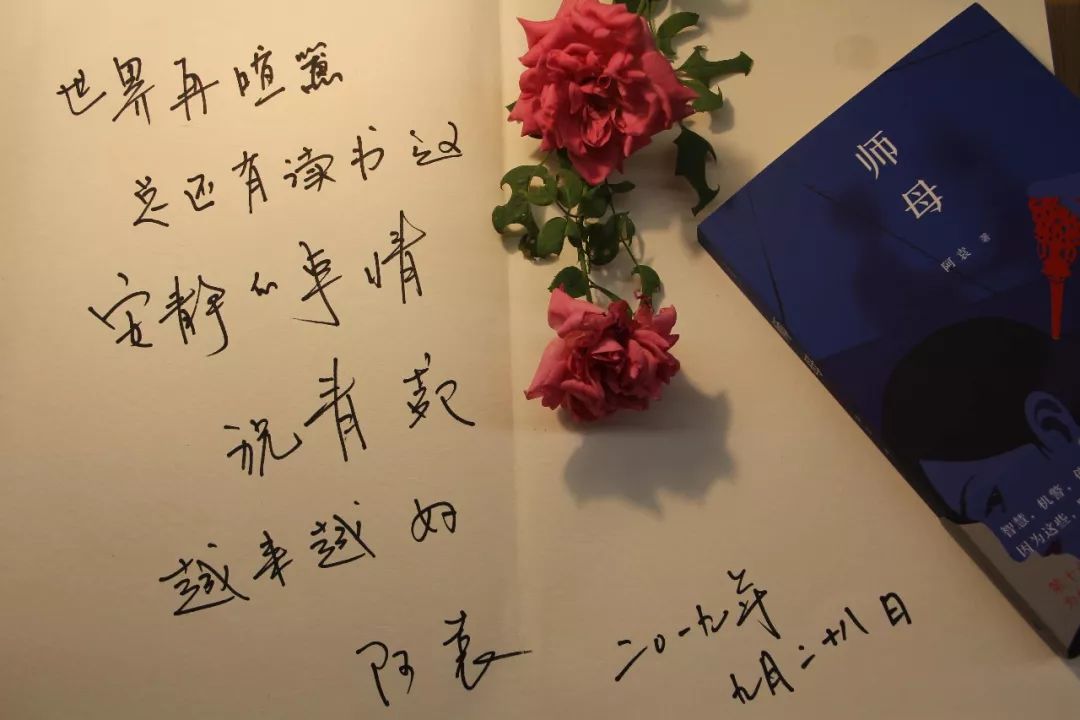 世界再喧嚣
总还有读书这
安静的事情
祝青苑
越来越好
阿袁
二〇一九年
九月二十八日
师母
阿袁 著
智慧，机警，
因为这些，
第十